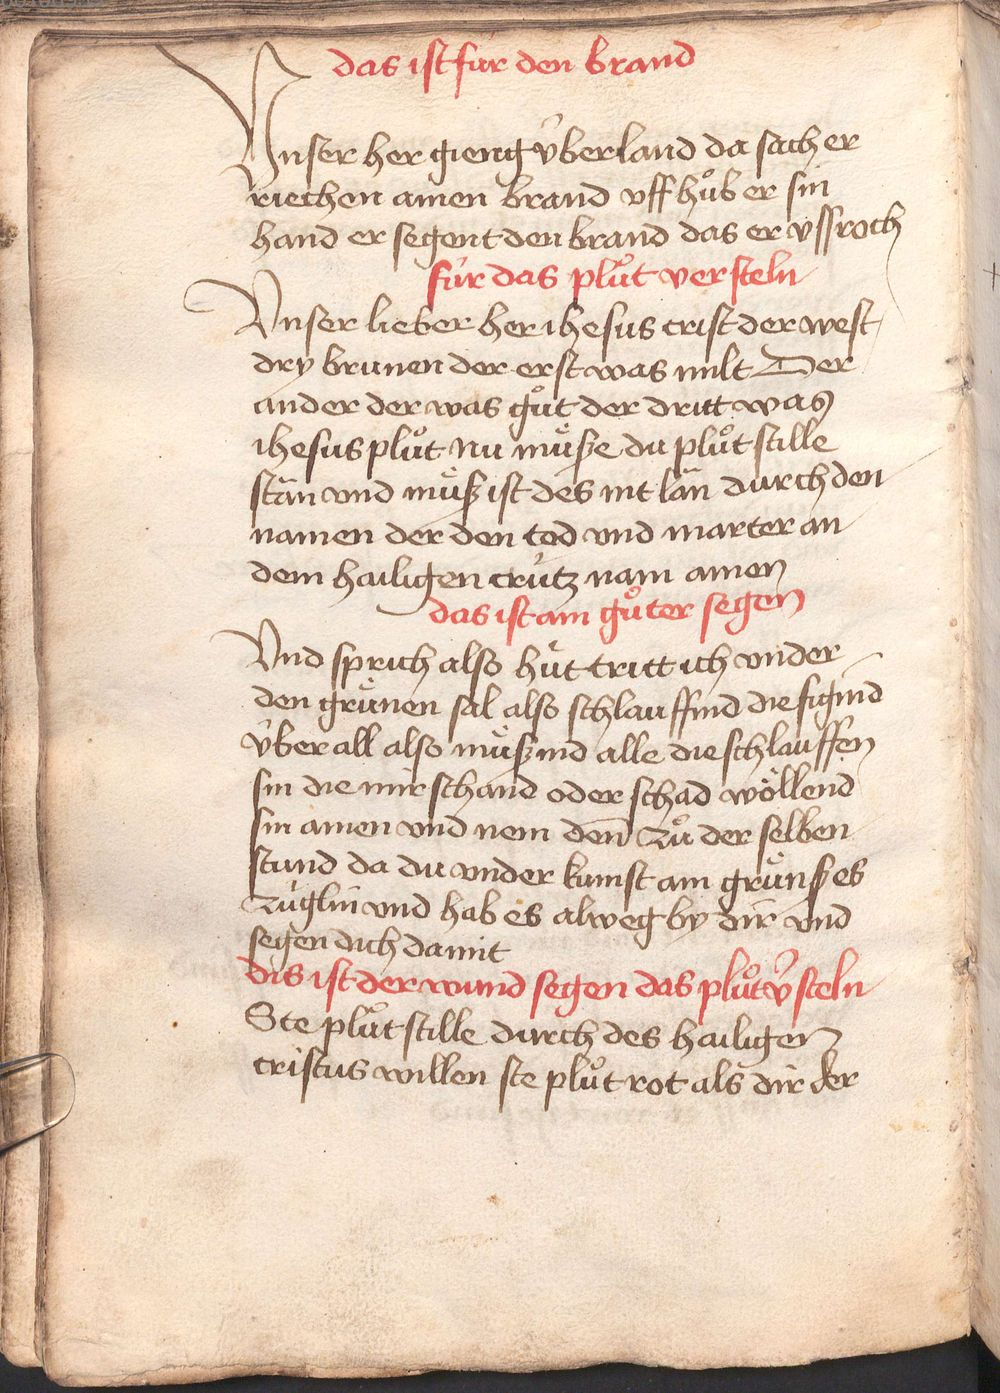 das ist für den brand
Vnser her gieng v̂berland da sach er
riechen ainen brand vff hůb er sin
hand er segent den brand das er vssroch
für das plůt versteln
Vnser lieber her ihesus crist der west
dry brunen der erst was milt Der
ander der was gůt der dritt was
ihesus plůt nu můsße du plůt stille
stän vnd můß ist des nit län durch den
namen der den tod vnd marter an
dem hailigen crütz nam amen
das ist ain gůter segen
Vnd sprich also hüt tritt ich vnder
den grünen sal also schlauffind die figind
v̂ber all also müßind alle die schlauffen
sin die mir schand oder schad wöllend
sin amen vnd nem den̄ zů der selben
stund da du vnder kumst ain grünß es
züglin vnd hab es alweg by dir vnd
segen dich da mit
dis ist der wund segen das plůt v̾steln
Ste plůt stille durch des hailigen
cristus willen ste plůt rot als dir der